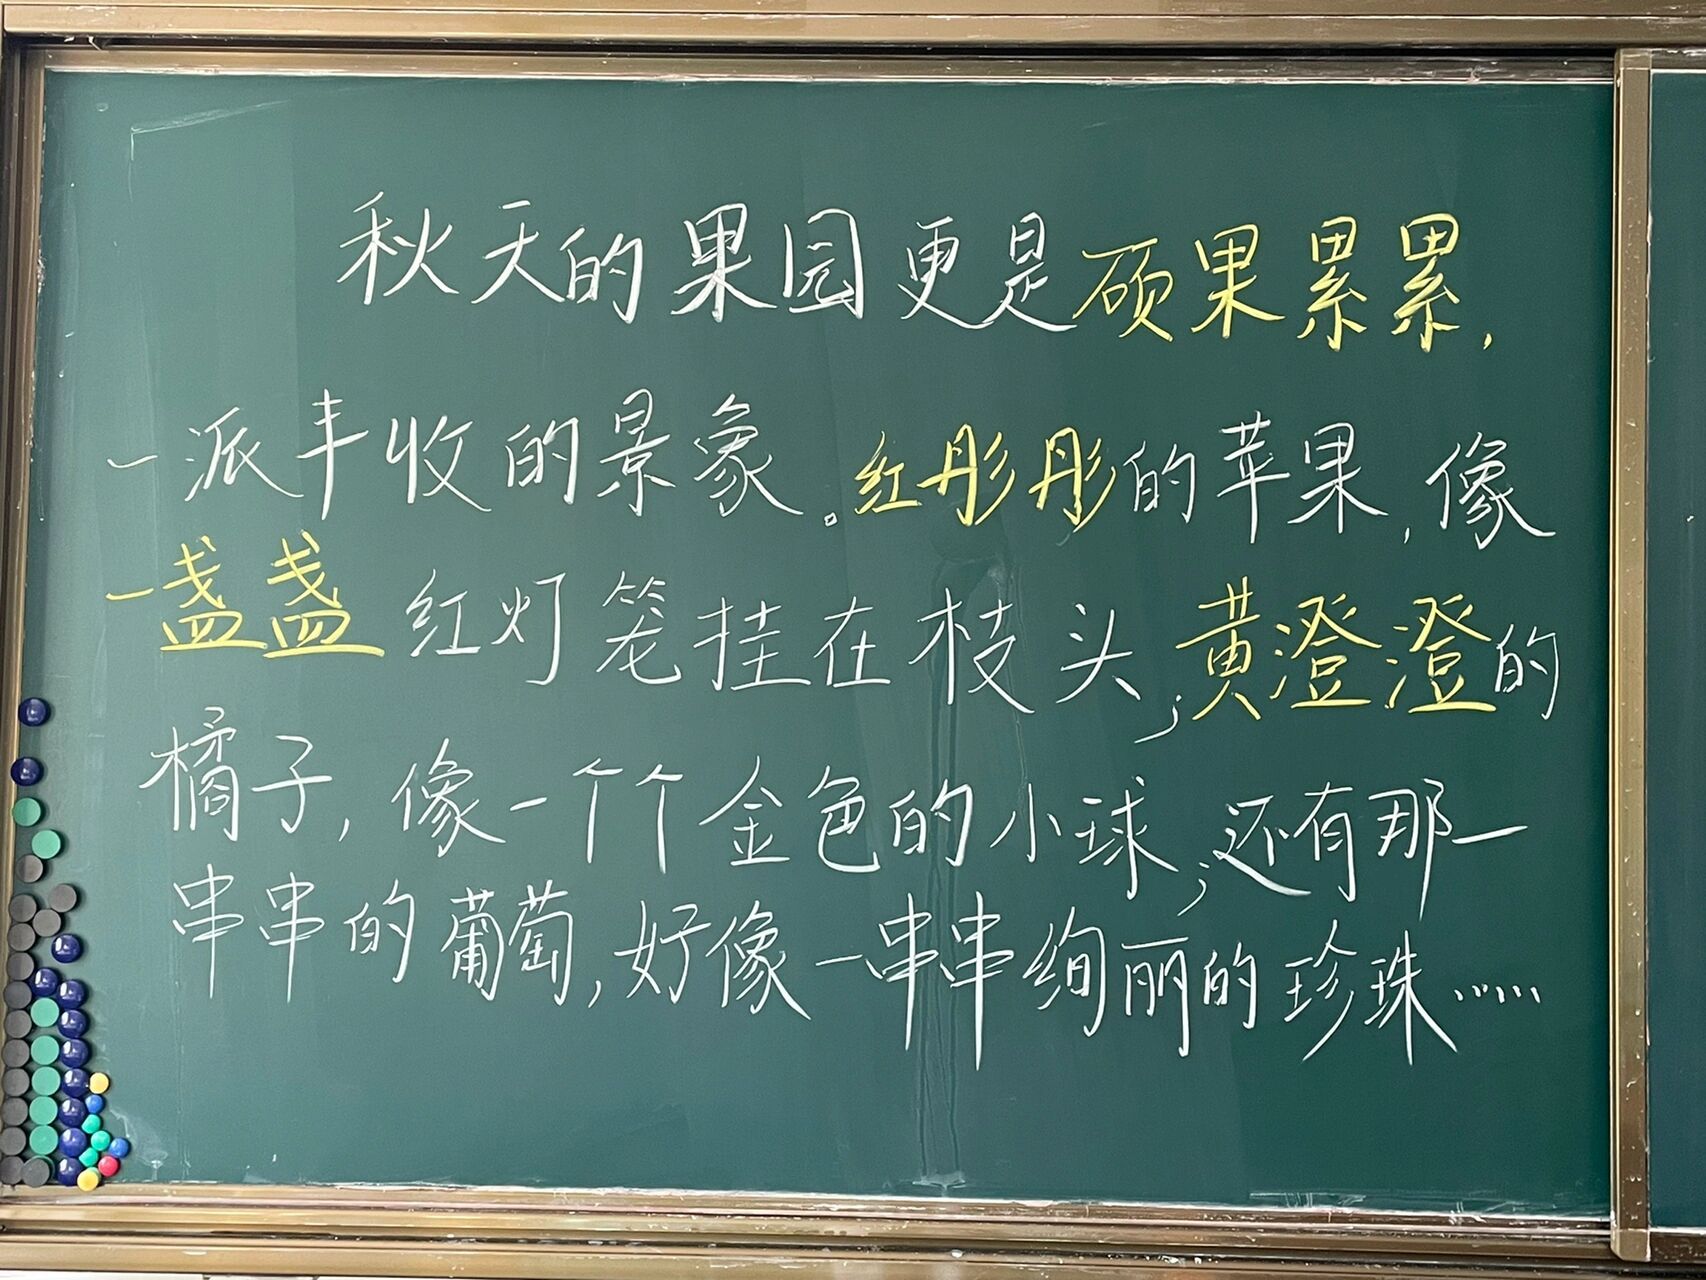 秋天的果园更是硕果累累，
一派丰收的景象。红彤彤的苹果，像
一盏盏红灯笼挂在枝头；黄澄澄的
橘子，像一个个金色的小球；还有那一
串串的葡萄，好像一串串绚丽的珍珠……